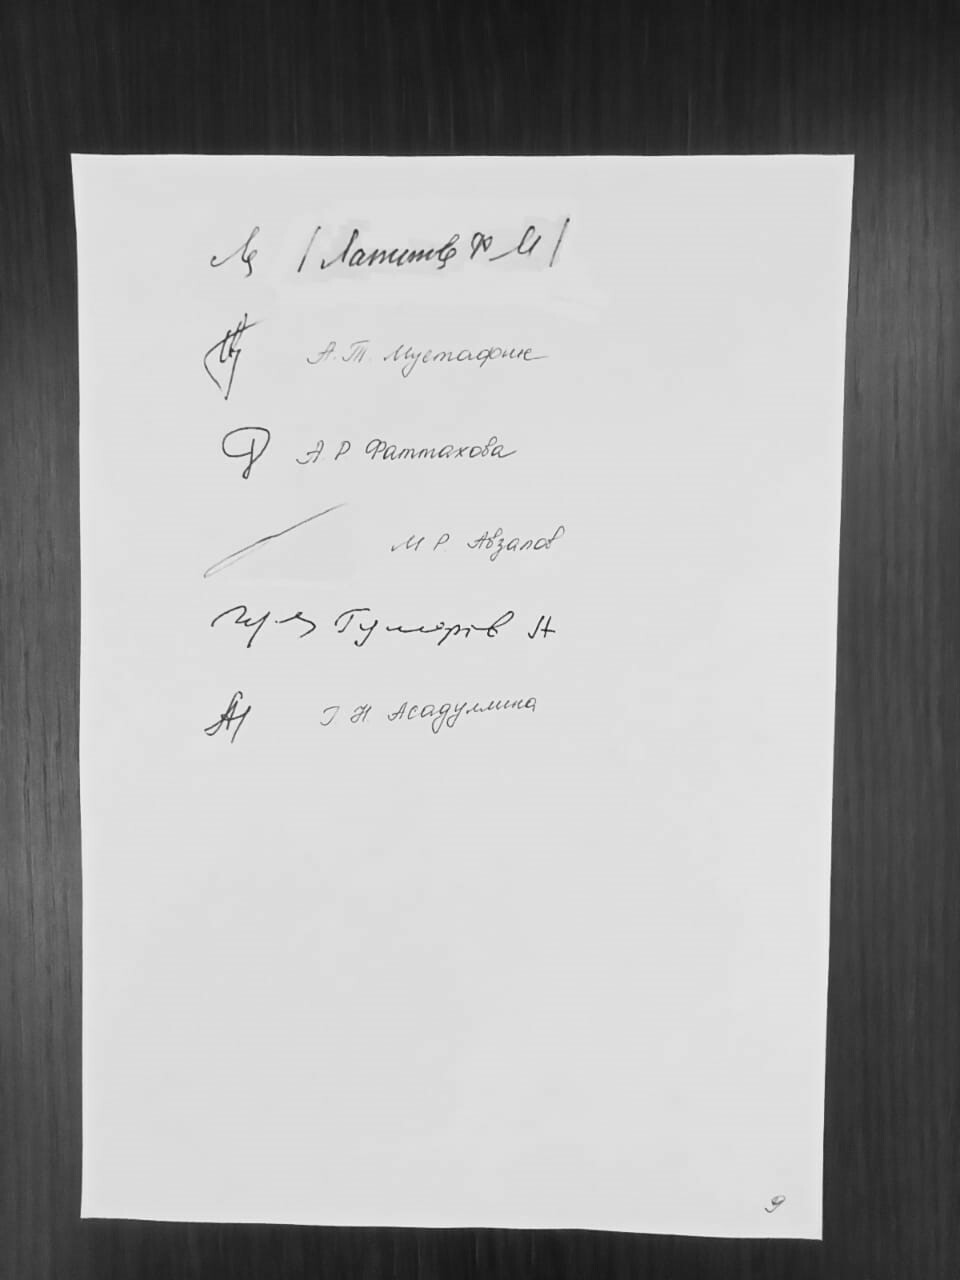 / Латыпов Ф М /
А.Т. Мустафин
А Р Фаттахова
М Р. Авзалов
Н
Г Н Асадуллина
9